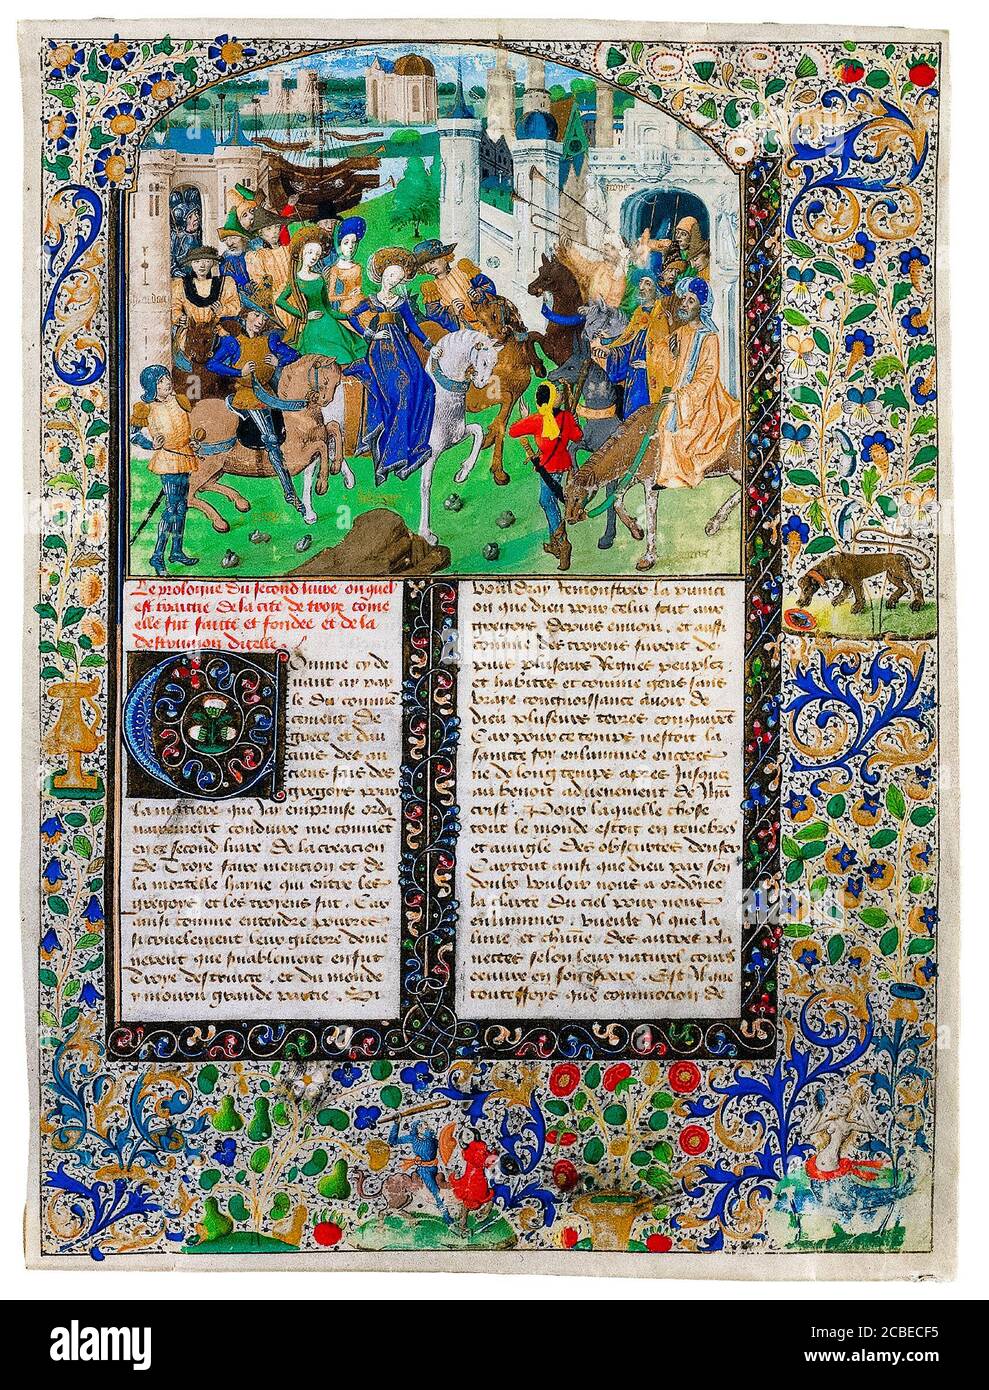 Le prologue du second livre ouquel
est traictie de la cite de troye come
elle fut faicte et fondee et de la
destruction dicelle
Comme cy de
uant ay par
le du comme
cement de
grece et dau
cuns des an
ciens fais des
gregois pour
la matiere que Jay emprinse ord
narement conduire me conuiet
en ce second liure de la creacion
de Troye faire mencion et de
la mortelle hayne qui entre les
gregois et les troyens fut. Car
ainsi comme entendre pourres
leur guerre
que finablement en fut
Troye destruicte. et du monde
y mouru grande partie. Si
vouldray demonstrer la punici
on que dieu pour celui fait aux
gregois depuis enuoia. et aussi
comme des troyens furent de
puis plusieurs Regnes peuplez
et habites et comme gens sans
vraye congnoissance auoir de
dieu plusieurs terres conquiret
Car pour ce temps nestoit la
saincte foy enluminee encores
ne de long temps apres Jusques
au benoit aduenement de Jhu
crist. Pour laquelle chose
tout le monde estoit en tenebres
et auugle des obscurtes
Car tout ainsi que dieu par son
doulz vouloir nous a ordonne
la clarte du ciel pour nous
enluminer. Veult Il que la
lune et chune des autres pla
nettes selon leur naturel cours
en son espere. Est Il que
toutesfoys que commocion de
alamy
Image ID: 2CBECF5
www.alamy.com